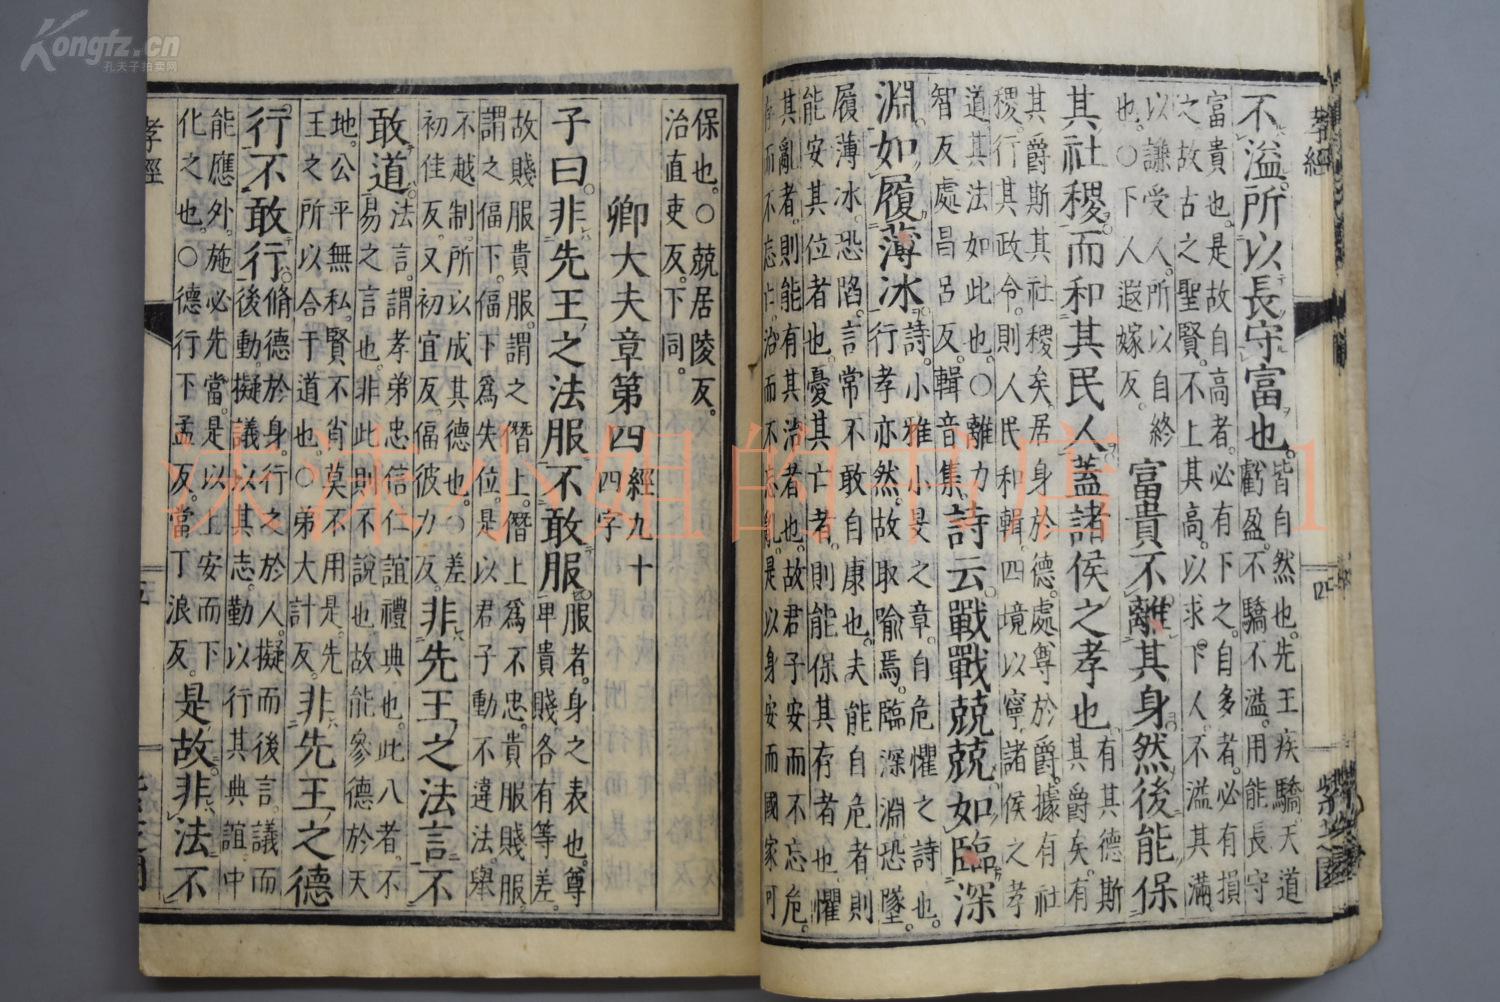 Kongfz.cn
孔夫子拍卖网
孝經
四
不溢所以長守富也皆自然也先王疾驕天道
虧盈不驕不溢用能長守
富貴也是故自高者必有下之自多者必有損
之故古之聖賢不上其高以求下人不溢其滿
以謙受人所以自終
也○下人遐嫁反
富貴不離其身然後能保
其社稷而和其民人蓋諸侯之孝也有其德斯
其爵矣有
其爵斯其社稷矣居身於德處尊於爵據有社
稷行其政令則人民和輯四境以寧諸侯之孝
道其法如此也○離力
智反處昌呂反輯音集
詩云戰戰兢兢如臨深
淵如履薄冰詩小雅小旻之章自危懼之詩也
行孝亦然故取喻焉臨深淵恐墜
履薄冰恐陷言常不敢自康也夫能自危者則
能安其位者也憂其亡者則能保其存者也懼
其亂者則能有其治者也故君子安而不忘危
存而不忘亡治而不忘亂是以身安而國家可
保也○兢居陵反
治直吏反下同
卿大夫章第四經九十
四字
子曰非先王之法服不敢服服者身之表也尊
卑貴賤各有等差
故賤服貴服謂之僭上僭上爲不忠貴服賤服
謂之偪下偪下爲失位是以君子動不違法舉
不越制所以成其德也○差
初佳反又初宜反偪彼力反
非先王之法言不
敢道法言謂孝弟忠信仁誼禮典也此八者不
易之言也非此則不說也故能參德於天
地公平無私賢不肖莫不用是先
王之所以合于道也○弟大計反
非先王之德
行不敢行脩德於身行之於人擬而後言議而
後動擬議以其志勤以行其典誼中
能應外施必先當是以上安而下
化之也○德行下孟反當丁浪反
是故非法不
孝經
沐沐小姐的书店1